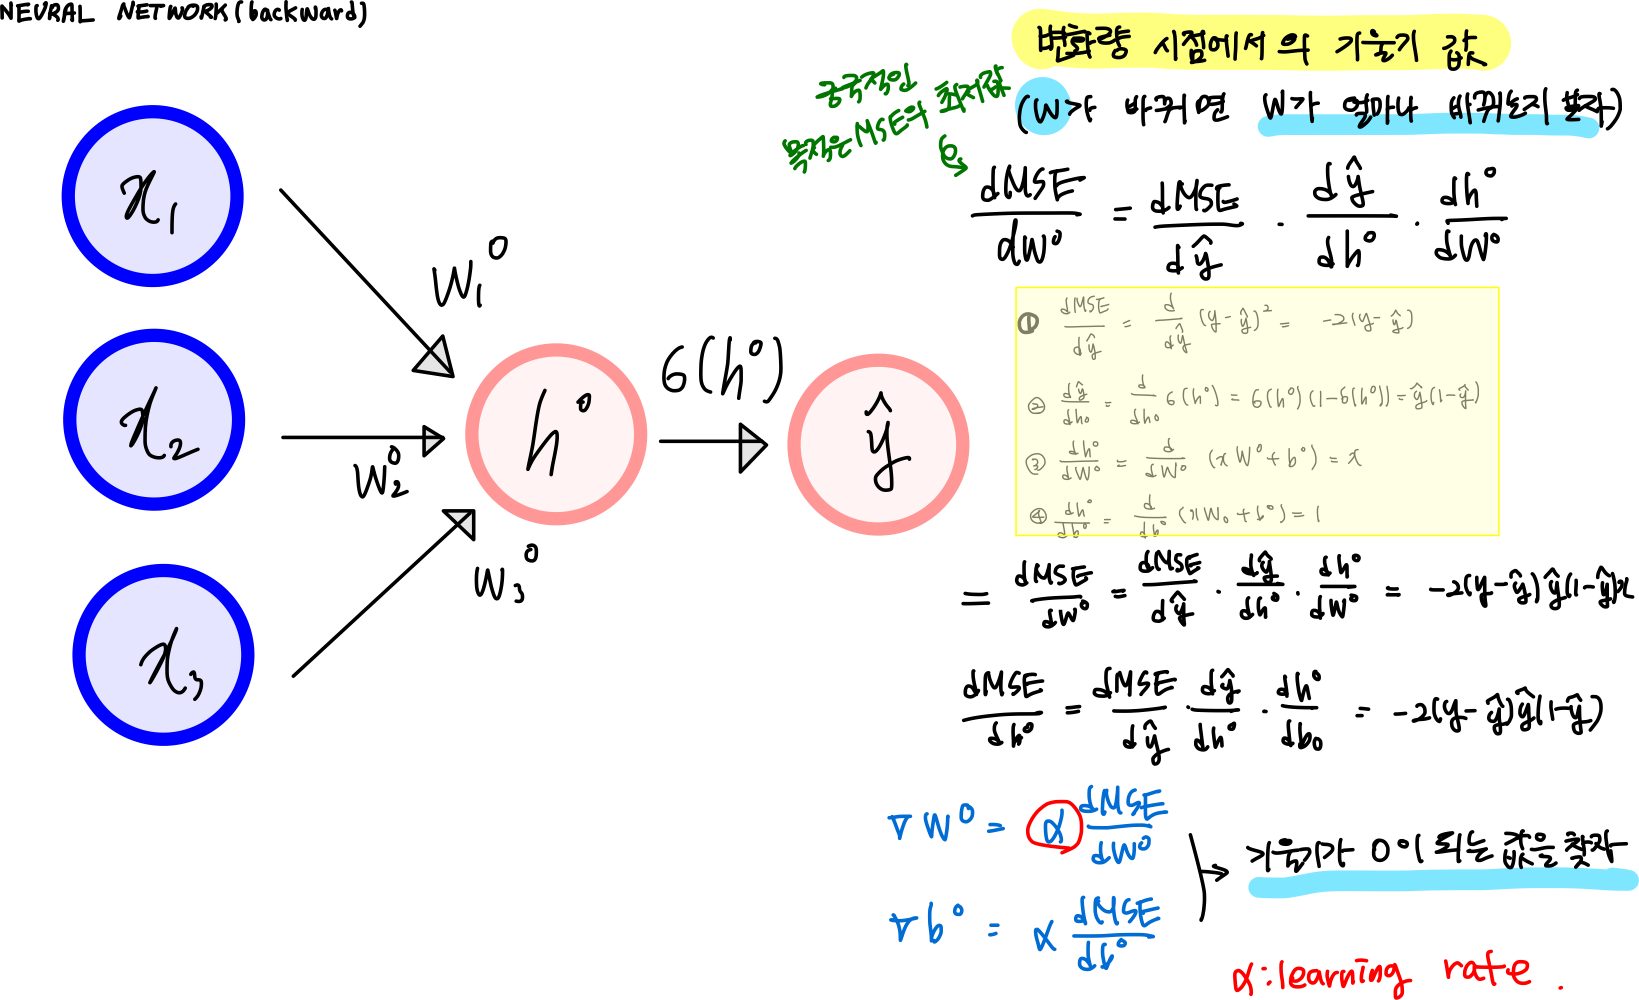 NEURAL NETWORK(backward)
x₁
x₂
x₃
W₁⁰
W₂⁰
W₃⁰
h⁰
6(h⁰)
ŷ
변화량 시점에서의 기울기 값
(W가 바뀌면 W가 얼마나 바뀌는지 보자)
궁극적인
목적은 MSE의 최저값
dMSE/dW⁰ = dMSE/dŷ · dŷ/dh⁰ · dh⁰/dW⁰
① dMSE/dŷ = d/dŷ (y-ŷ)² = -2(y-ŷ)
② dŷ/dh₀ = d/dh₀ 6(h⁰) = 6(h⁰)(1-6(h⁰)) = ŷ(1-ŷ)
③ dh⁰/dW⁰ = d/dW⁰ (xW⁰+b⁰) = x
④ dh⁰/db⁰ = d/db⁰ (xW₀+b⁰) = 1
= dMSE/dW⁰ = dMSE/dŷ · dŷ/dh⁰ · dh⁰/dW⁰ = -2(y-ŷ)ŷ(1-ŷ)x
dMSE/db⁰ = dMSE/dŷ · dŷ/dh⁰ · dh⁰/db₀ = -2(y-ŷ)ŷ(1-ŷ)
∇W⁰ = α dMSE/dW⁰
∇b⁰ = α dMSE/db⁰
기울기가 0이 되는 값을 찾자
α:learning rate.